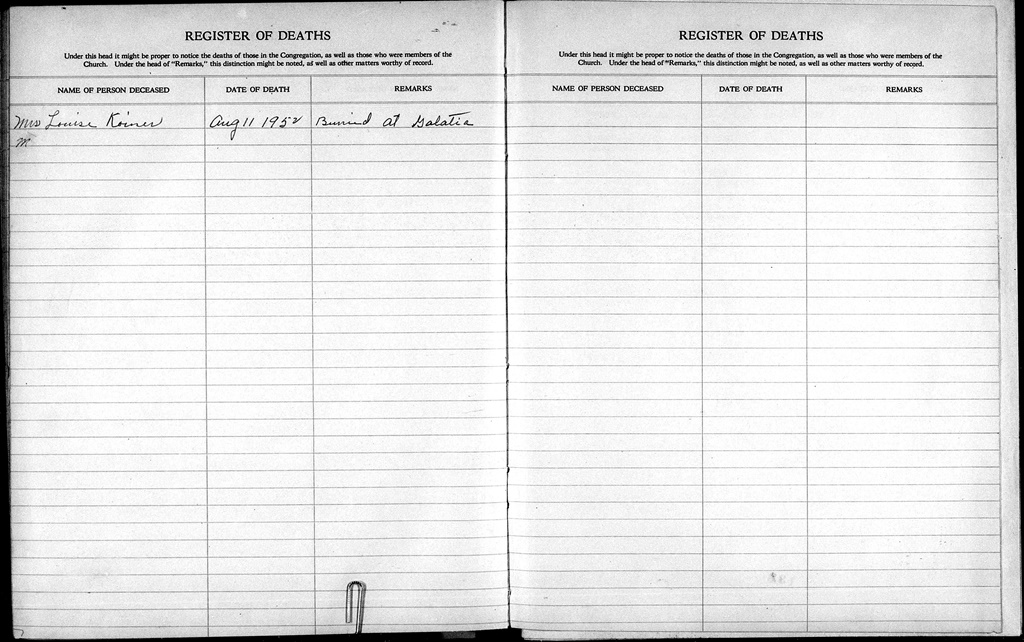 REGISTER OF DEATHS
Under this head it might be proper to notice the deaths of those in the Congregation, as well as those who were members of the
Church. Under the head of "Remarks," this distinction might be noted, as well as other matters worthy of record.
NAME OF PERSON DECEASED DATE OF DEATH REMARKS
Mrs Louise Koiner Aug 11 1952 Burried at Galatia
M.
REGISTER OF DEATHS
Under this head it might be proper to notice the deaths of those in the Congregation, as well as those who were members of the
Church. Under the head of "Remarks," this distinction might be noted, as well as other matters worthy of record.
NAME OF PERSON DECEASED DATE OF DEATH REMARKS